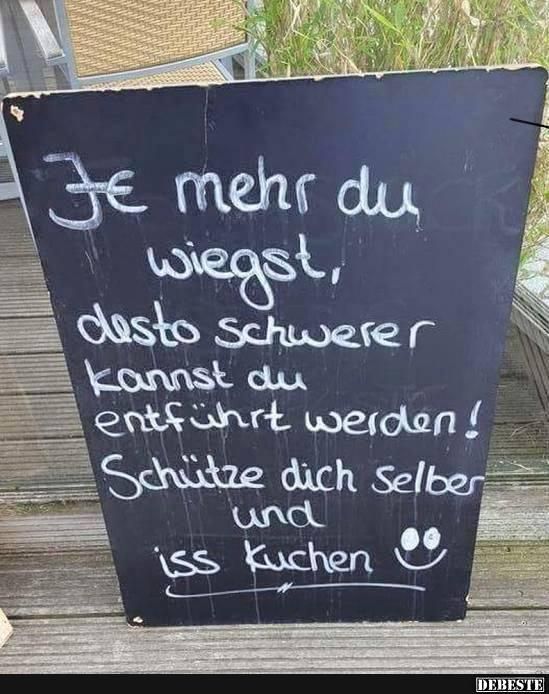 Je mehr du
wiegst,
desto schwerer
kannst du
entführt werden!
Schütze dich selber
und
iss Kuchen
DEBESTE